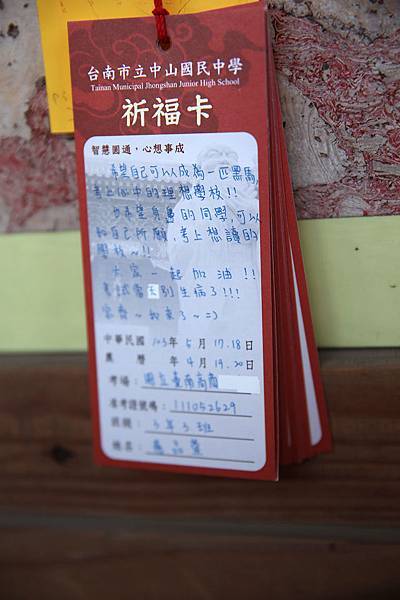 台南市立中山國民中學
Tainan Municipal Jhongshan Junior High School
祈福卡
智慧圓通，心想事成
希望自己可以成為一匹黑馬，
考上心中的理想學校!!
也希望免費的同學，可以
和自己所願，考上想讀的
學校~!!
大家一起加油!!
考試當天別生病了!!!
113年5月17.18日
中華民國 103年5月17.18日
農曆 年4月19.20日
考場：國立臺南高商
准考證號碼：111052629
班級：3年3班
姓名：